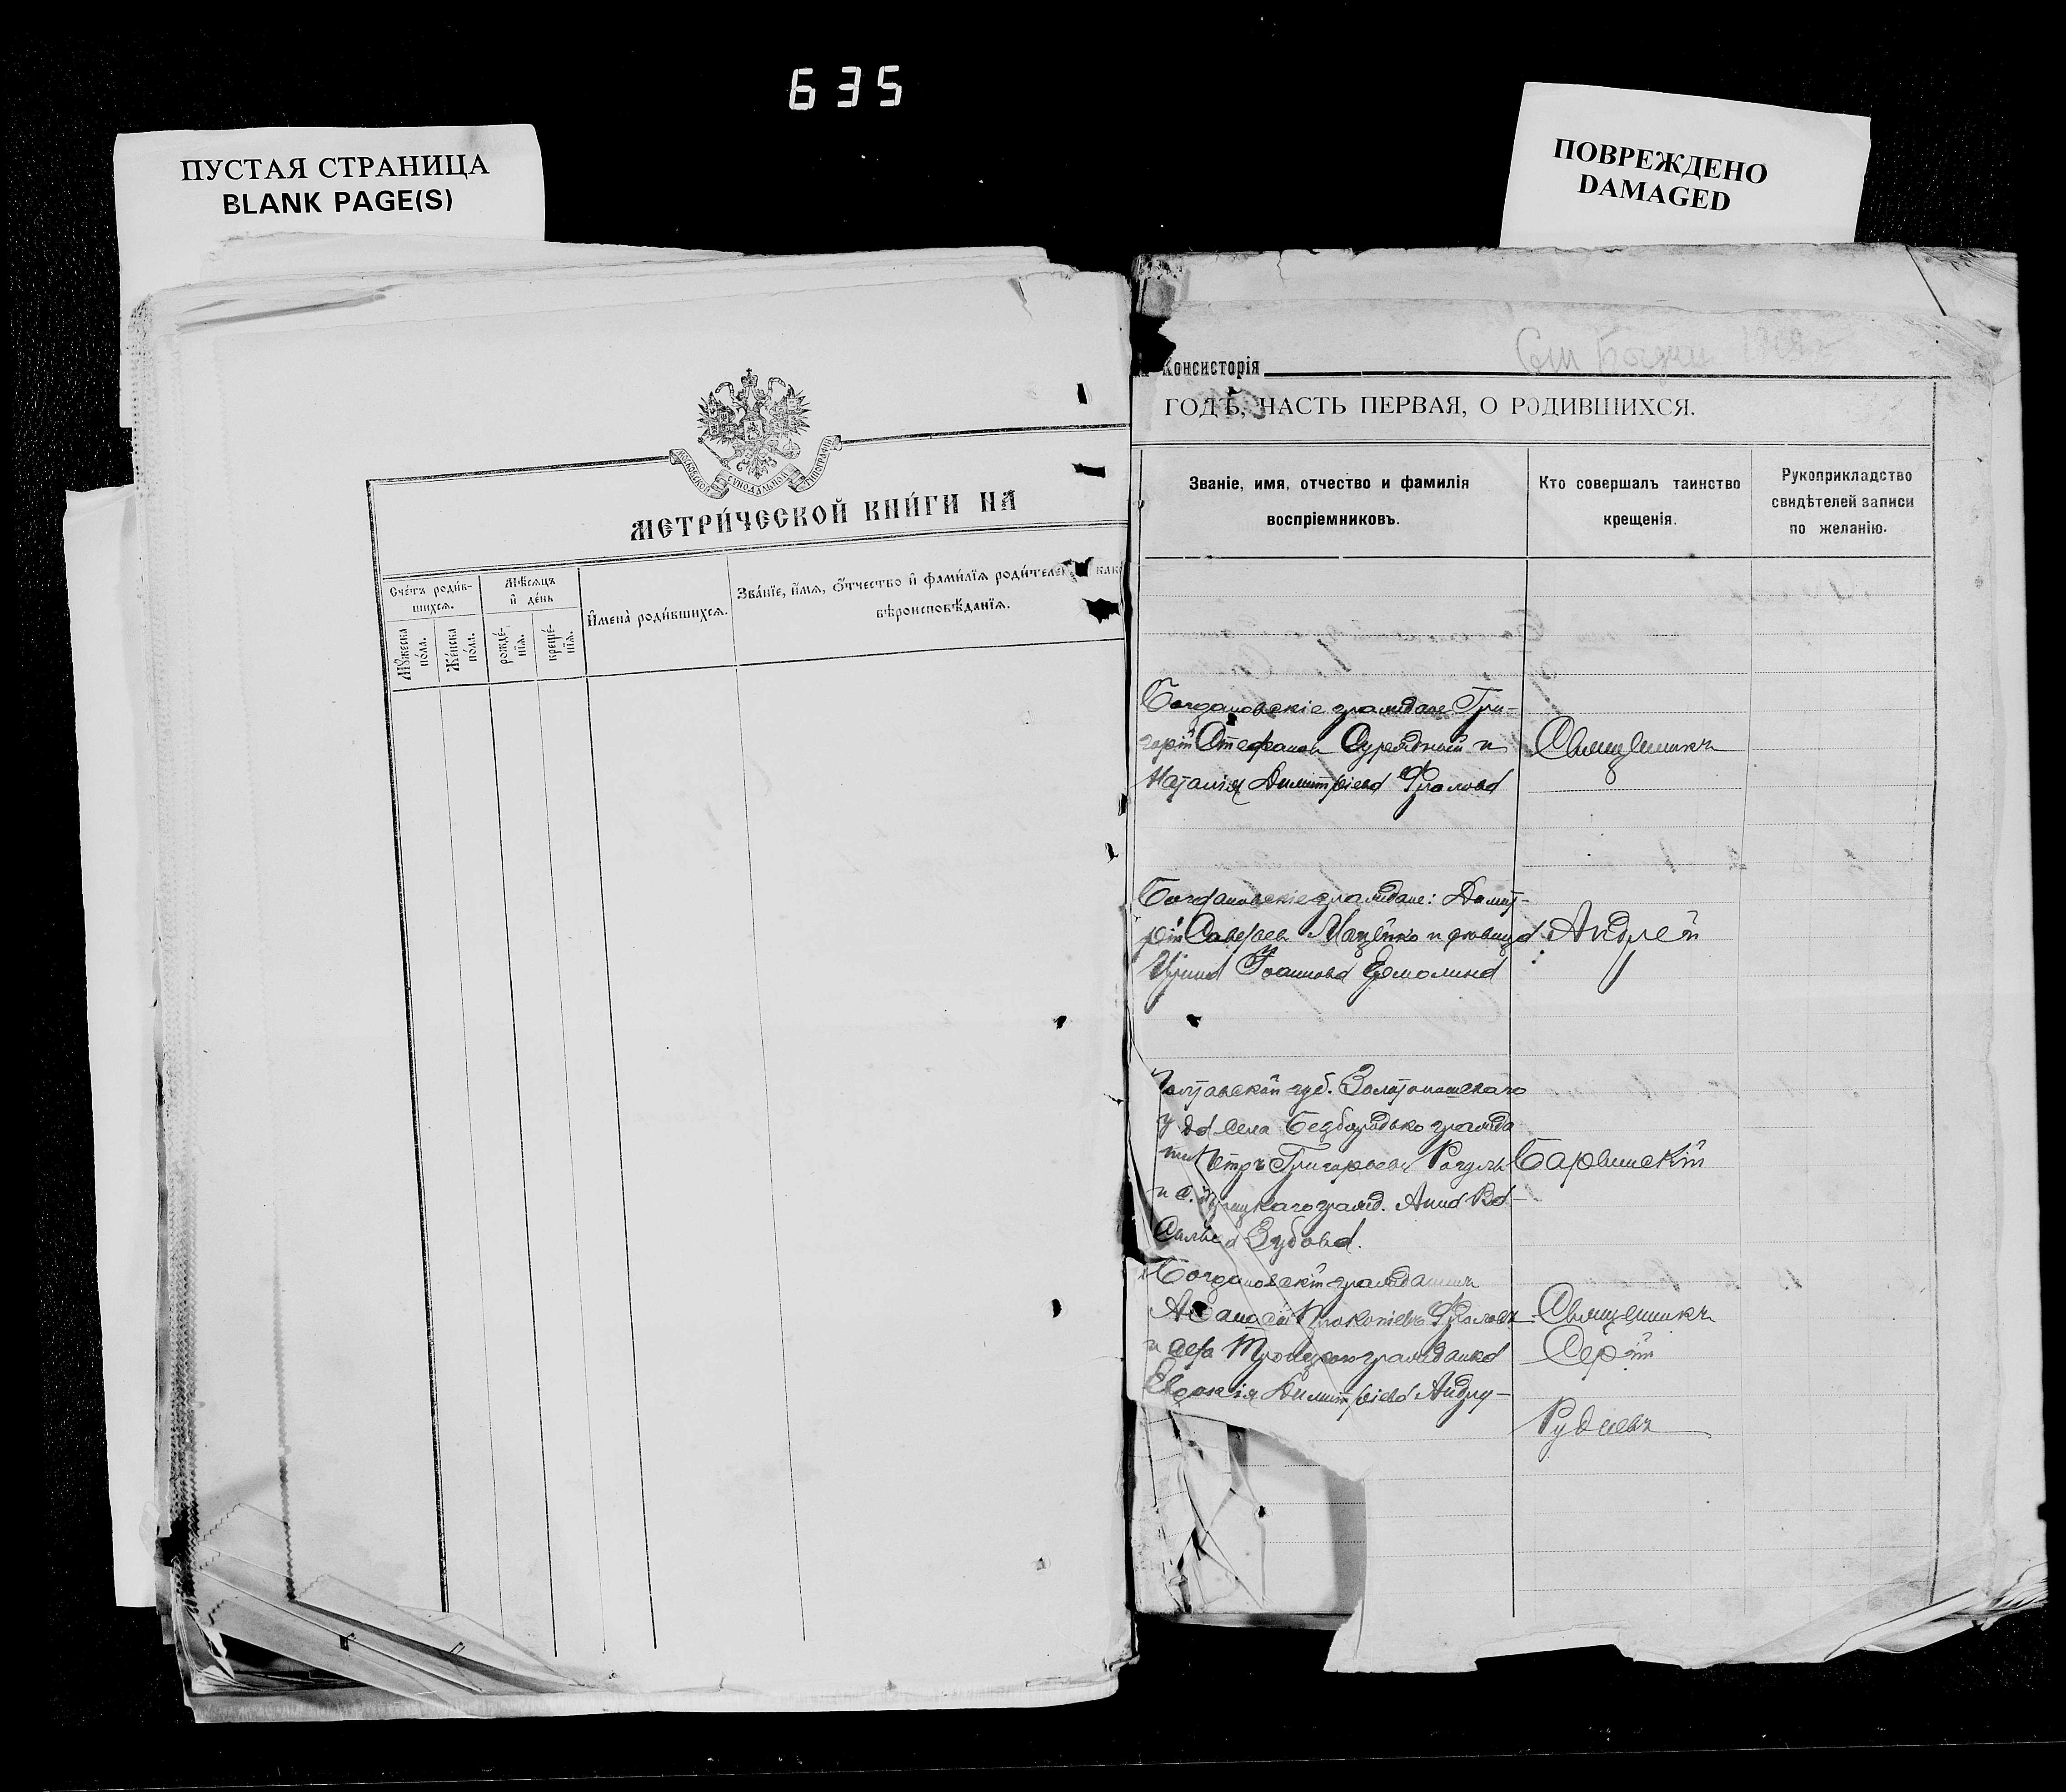 635
ПУСТАЯ СТРАНИЦА
BLANK PAGE(S)
ПОВРЕЖДЕНО
DAMAGED
МОСКОВСКОЙ СѴНОДАЛЬНОЙ ТИПОГРАФІИ
МЕТРИ́ЧЕСКОЙ КНИ́ГИ НА
Сче́тъ роди́в-
шихсѧ.
Мѣ́сѧцъ
и҆ де́нь
И҆мена̀ роди́вшихсѧ.
Зва́нїе, и҆́мѧ, ѻ҆́тчество и҆ фами́лїѧ роди́теле
вѣроисповѣ́данїѧ.
Мꙋ́жеска
по́ла.
Же́нска
по́ла.
рожде́-
нїѧ.
креще́-
нїѧ.
Консисторія
Ст Богдан
ГОДѢ, ЧАСТЬ ПЕРВАЯ, О РОДИВШИХСЯ.
Званіе, имя, отчество и фамилія
воспріемниковъ.
Кто совершалъ таинство
крещенія.
Рукоприкладство
свидѣтелей записи
по желанію.
Богдановскіе граждане Гри-
горій Стефанов и
Наталія Димитріева Фролова
Священникъ
Богдановскіе граждане: Димит-
рій Савельев Маценко и девица
Ирина Іоаннова Ермолина
Андрей
Полтавской губ. Золотоношскаго
у да села Безбородько гражда
нин Петръ Григорьев
и с. Троицкаго гражд. Анна Ва-
сильева Зубова.
Барвинскій
Богдановскій гражданинъ
Аѳанасій Прокопіевъ Фроловъ
и села Троицкаго гражданка
Евдокія Димитріева Андру-
Священникъ
Сергій
Рудневъ